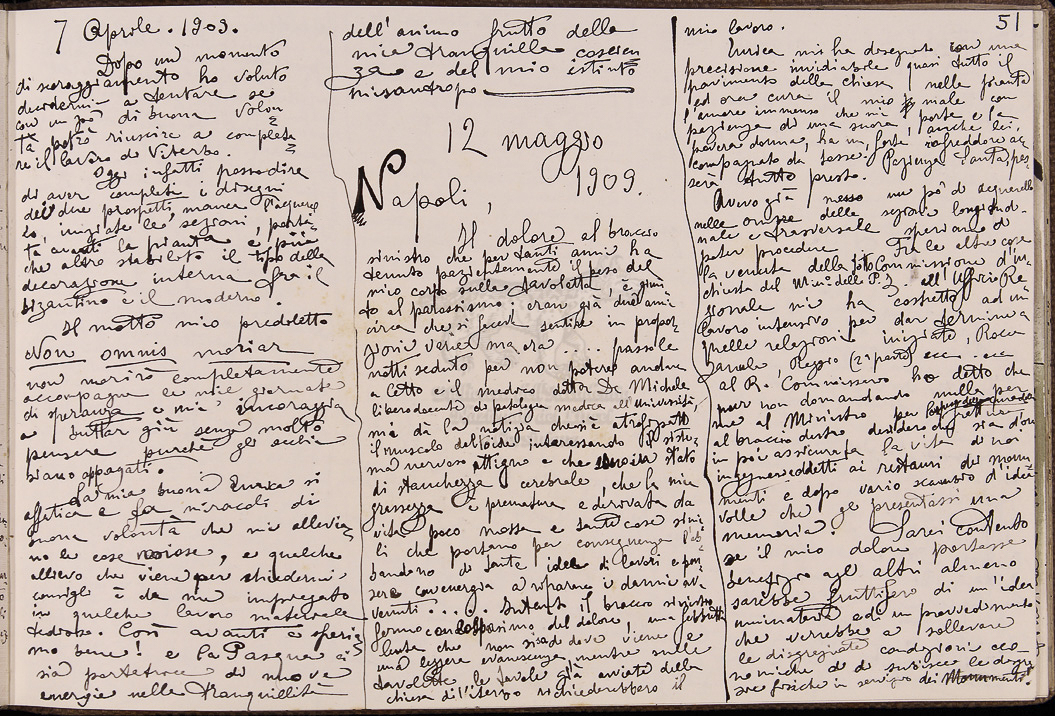 7 Aprile. 1909.
Dopo un momento
di scoraggiamento ho voluto
decidermi a tentare se
con un po' di buona volon
tà potrò riuscire a comple
re il lavoro di Viterbo.
Oggi infatti posso dire
di aver completi i disegni
dei due prospetti, manca l'acquerel
lo, iniziate le sezioni, porta
ta avanti la pianta e più
che altro stabilito il tipo della
decorazione interna fra il
bizantino e il moderno.
Il motto mio prediletto
Non omnis moriar
non morirò completamente
accompagna le mie giornate
di speranza e mi incoraggia
a buttar giù senza molto
pensare purché gli occhi
siano appagati.
La mia buona Enrica si
affatica e fa miracoli di
buona volontà che mi allevia
no le cose noiose, e qualche
allievo che viene per chiedermi
consigli è da me impiegato
in qualche lavoro materiale
tedioso. Così avanti e speria
mo bene! e la Pasqua ci
sia portatrice di nuove
energie nella tranquillità
dell'animo frutto della
mia tranquilla coscien
za e del mio istinto
misantropo
12 maggio
1909.
Napoli,
Il dolore al braccio
sinistro che per tanti anni ha
tenuto pazientemente il peso del
mio corpo sulla tavoletta è giun
to al parossismo: eran già due anni
circa che si facea sentire in propor
zioni varie ma ora .... passo le
notti seduto per non potere andare
a letto e il medico dottor De Michele
libero docente di patologia medica all'Università,
mi dà la notizia che si è atrofizzato
il muscolo deltoide interessando il siste
ma nervoso attiguo e che stato
di stanchezza cerebrale, che la mia
grassezza è prematura e derivata da
vita poco mossa e tante cose simi
li che portano per conseguenza l'ab
bandono di tante idee di lavori e pen
sare con energia a riparare i danni av
venuti .... Intanto il braccio sinistro
fermo con del dolore, una febbretta
lenta che non si sa da dove viene e
una leggera evanescenza, mentre sulle
tavolette le tavole già avviate della
chiesa di Viterbo richiederebbero il
51
mio lavoro.
Enrica mi ha disegnato con una
precisione invidiabile quasi tutto il
pavimento della chiesa nelle piante
ed ora cura il mio male con
l'amore immenso che mi porta e la
pazienza di una suora, anche lei,
povera donna, ha un forte raffreddore ac
compagnato da tosse. Pazienza Santa, pas
serà tutto presto.
Avevo già messo un po' di acquerello
nelle ombre delle sezioni longitudi
nale e trasversale sperando di
poter procedere. Fra le altre cose
la venuta della Commissione d'in
chiesta del Min. della P. I. all'Ufficio Re
gionale mi ha costretto ad un
lavoro intensivo per dar termine a
quelle relazioni iniziate, Rocca
Reggio (2ª parte) ecc. ecc.
al R. Commissario ho detto che
pur non domandando nulla per
me al Ministro per
al braccio destro desidero che sia d'ora
in poi assicurata la vita di noi
ingegneri addetti ai restauri dei monu
menti e dopo vario scambio d'idee
volle che gli presentassi una
memoria. Sarei contento
se il mio dolore portasse
beneficio agli altri almeno
sarebbe fruttifero di un'idea
umanitaria e di un provvedimento
che verrebbe a sollevare
le disgraziate condizioni eco
nomiche di chi subisce le disgra
zie fisiche in servizio dei Monumenti!